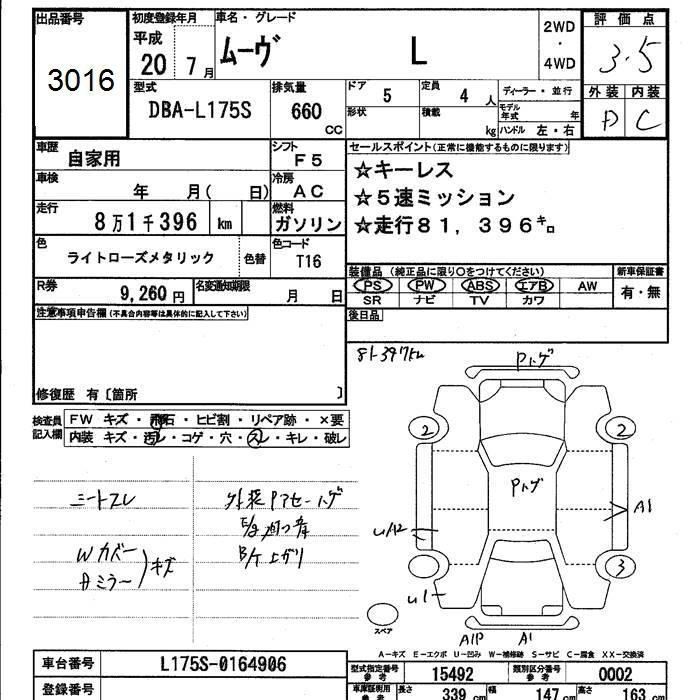 出品番号
3016
初度登録年月
平成
20 7月
車名・グレード
ムーヴ L
2WD
・
4WD
評価点
3.5
外装 内装
A C
型式
DBA-L175S
排気量
660
CC
ドア 5
定員 4 人
形状
積載 kg
ディーラー・並行
モデル年式 年
ハンドル 左・右
車歴 自家用
シフト F5
車検 年 月( 日)
冷房 AC
走行 8万1千396 km
燃料 ガソリン
色 ライトローズメタリック 色替
色コード T16
R券 9,260円
名変通知期限 月 日
セールスポイント(正常に機能するものに限ります)
☆キーレス
☆5速ミッション
☆走行81,396㌔
装備品(純正品に限り○をつけてください)
PS PW ABS エアB AW
SR ナビ TV カワ
新車保証書
有・無
後日品
注意事項申告欄(不具合内容等は具体的に記入して下さい)
修復歴 有〔箇所 〕
検査員記入欄
FW キズ・飛石・ヒビ割・リペア跡・×要
内装 キズ・汚レ・コゲ・穴・スレ・キレ・破レ
シートスレ
Wカバー
Aミラー
キズ
81397km
Pトゲ
2
2
Pトゲ
A1
U/A2
3
U1
A1P A1
スペア
A-キズ E-エクボ U-凹み W-補修跡 S-サビ C-腐食 XX-交換済
車台番号 L175S-0164906
登録番号
型式指定番号参考 15492
類別区分番号参考 0002
車庫証明用参考 長さ 339cm 幅 147cm 高さ 163cm